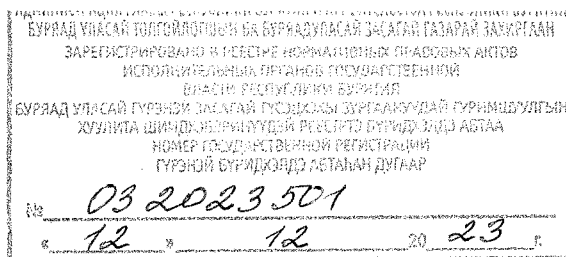 БУРЯАД УЛАСАЙ ТОЛГОЙЛОГШЫН БА БУРЯАД УЛАСАЙ ЗАСАГАЙ ГАЗАРАЙ ЗАХИРГААН
ЗАРЕГИСТРИРОВАНО В РЕЕСТРЕ НОРМАТИВНЫХ ПРАВОВЫХ АКТОВ
ИСПОЛНИТЕЛЬНЫХ ОРГАНОВ ГОСУДАРСТВЕННОЙ
ВЛАСТИ РЕСПУБЛИКИ БУРЯТИЯ
БУРЯАД УЛАСАЙ ГҮРЭНЭЙ ЗАСАГАЙ
РЕЕСТРТЭ БҮРИДХЭЛДЭ АБТАА
НОМЕР ГОСУДАРСТВЕННОЙ РЕГИСТРАЦИИ
ГҮРЭНЭЙ БҮРИДХЭЛДЭ АБТАҺАН ДУГААР
№ 03 2023 501
« 12 » 12 20 23 г.